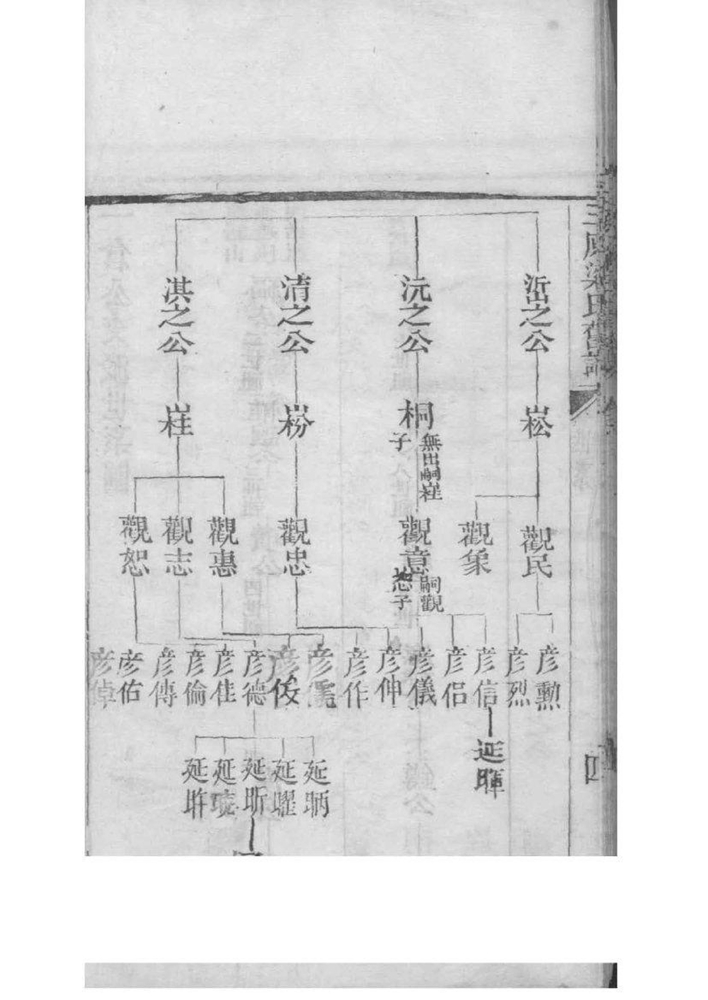 三原梁氏舊譜
四
㳂之公
沅之公
清之公
淇之公
松
桐
無出嗣
子
枌
桂
觀民
觀象
觀意
嗣觀
恕子
觀忠
觀惠
觀志
觀恕
彥勳
彥烈
彥信
彥侶
彥儀
彥伸
彥作
彥儒
彥俊
彥德
彥佳
彥倫
彥傳
彥佑
彥倬
延暉
延昞
延曜
延昕
延
延